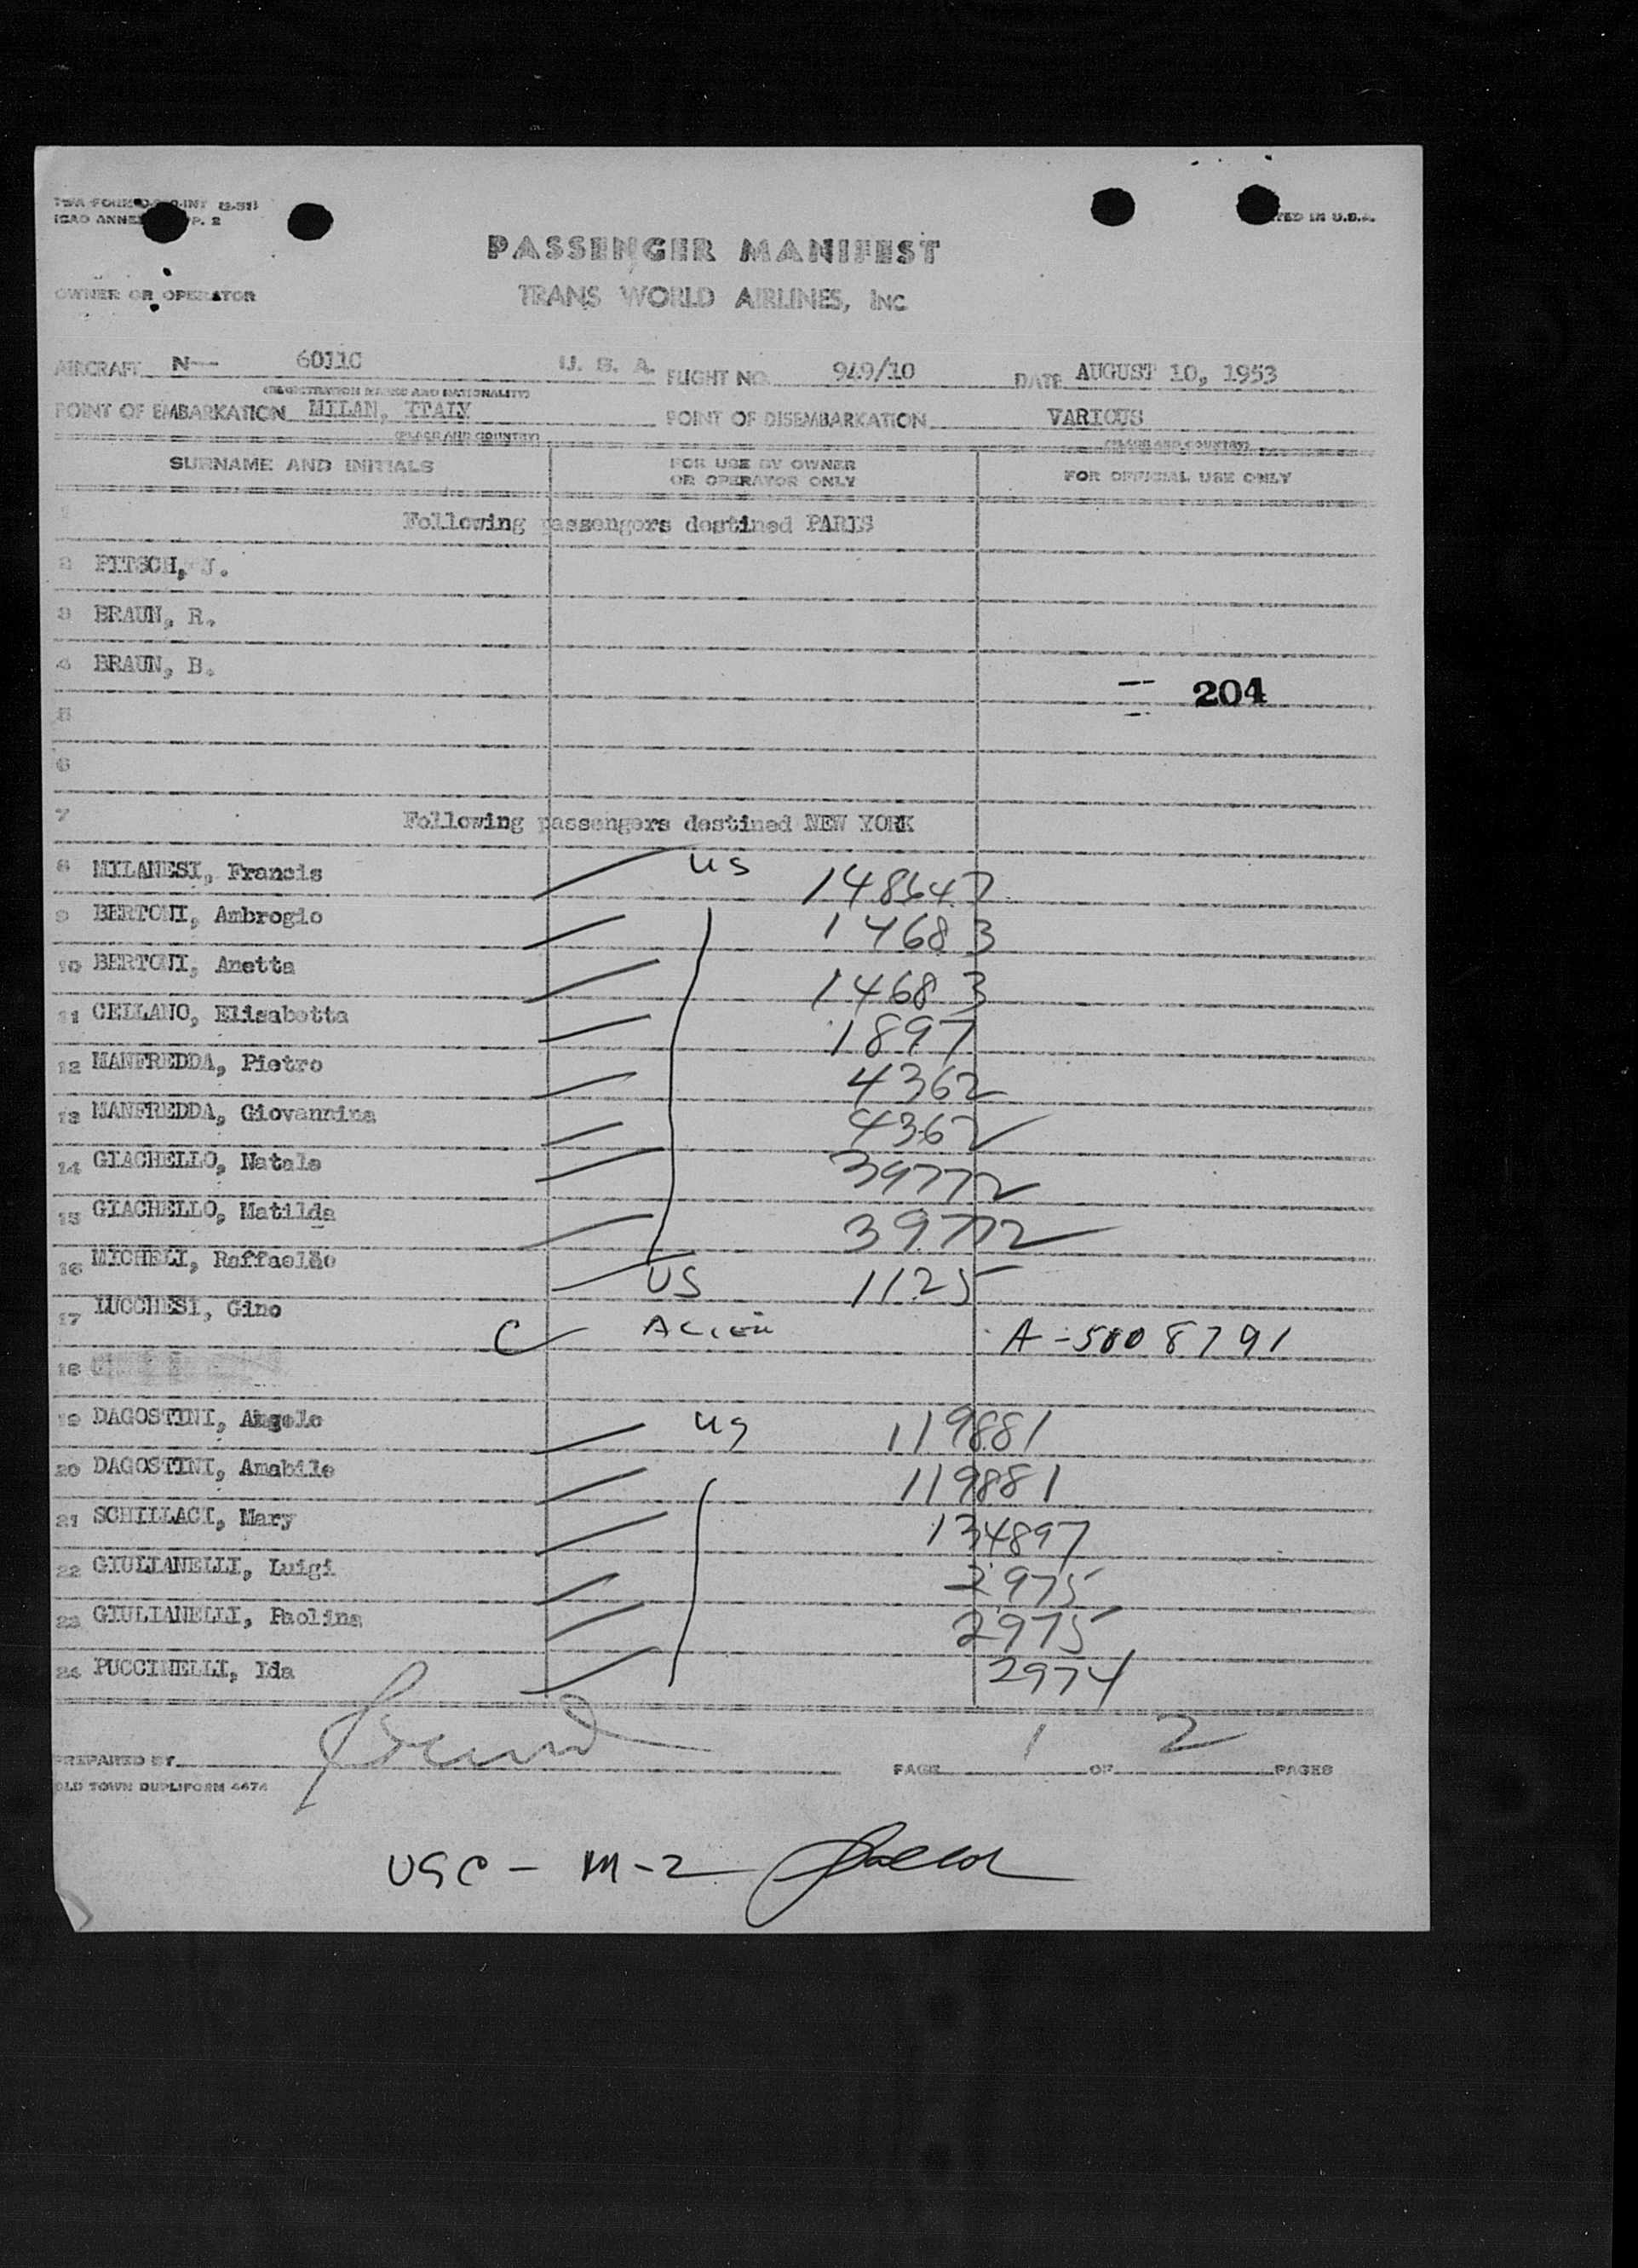 PRINTED IN U.S.A.
ICAO ANNEX 9 APP. 2
PASSENGER MANIFEST
OWNER OR OPERATOR TRANS WORLD AIRLINES, INC
AIRCRAFT N— 6011C U. S. A. FLIGHT NO. 949/10 DATE AUGUST 10, 1953
(REGISTRATION MARKS AND NATIONALITY)
POINT OF EMBARKATION MILAN, ITALY POINT OF DISEMBARKATION VARIOUS
(PLACE AND COUNTRY) (PLACE AND COUNTRY)
SURNAME AND INITIALS FOR USE BY OWNER OR OPERATOR ONLY FOR OFFICIAL USE ONLY
1 Following passengers destined PARIS
2 PITSCH, J.
3 BRAUN, R.
4 BRAUN, B.
204
5
6
7 Following passengers destined NEW YORK
8 MILANESI, Francis US 148647
9 BERTONI, Ambrogio 14683
10 BERTONI, Anetta 14683
11 CELLANO, Elisabetta 1897
12 MANFREDDA, Pietro 4362
13 MANFREDDA, Giovannina 4362
14 GIACHELLO, Natale 39772
15 GIACHELLO, Matilda 39772
16 MICHELI, Raffaello US 1125
17 LUCCHESI, Gino C Alien A-5008791
18
19 DAGOSTINI, Angelo US 119881
20 DAGOSTINI, Amabile 119881
21 SCHILLACI, Mary 134897
22 GIULIANELLI, Luigi 2975
23 GIULIANELLI, Paolina 2975
24 PUCCINELLI, Ida 2974
PREPARED BY PAGE 1 OF 2 PAGES
OLD TOWN DUPLIFORM 4474
USC - M-2